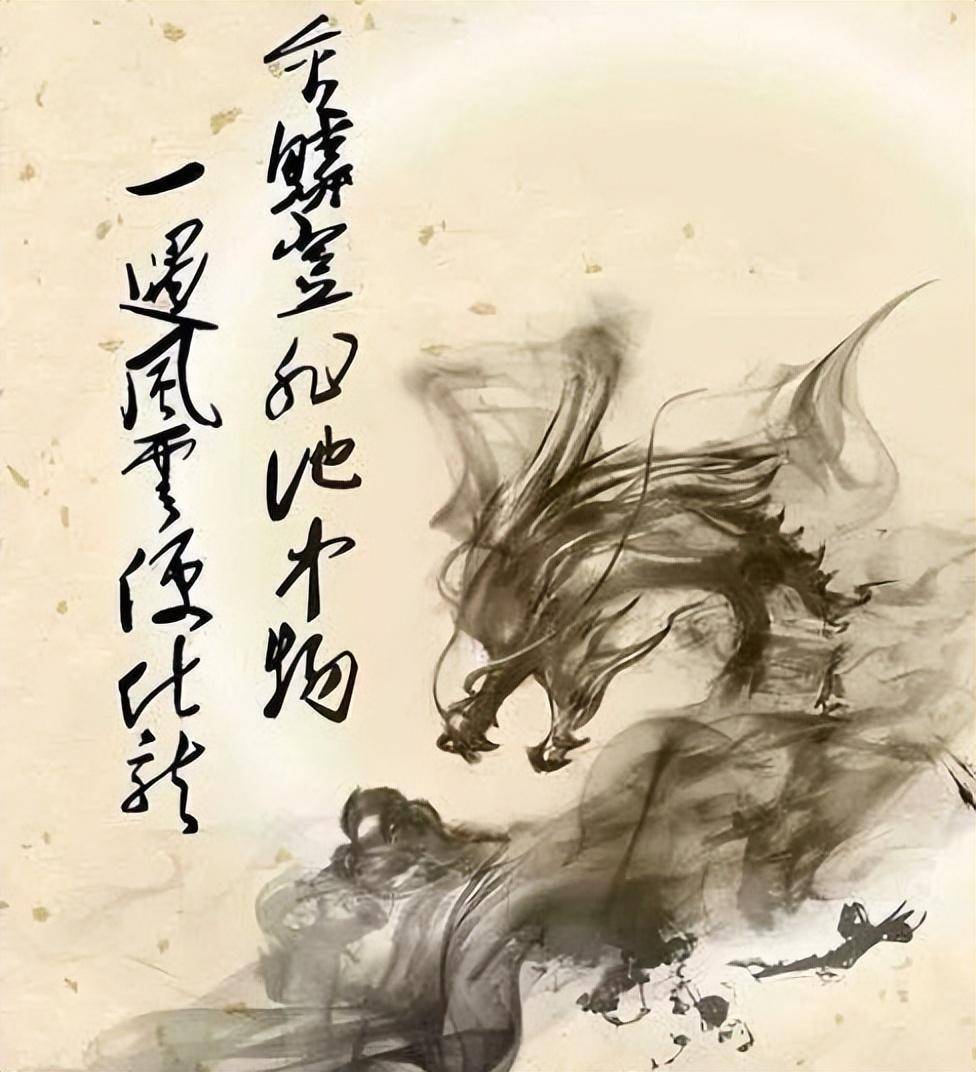 金鳞岂非池中物
一遇風雲便化龍